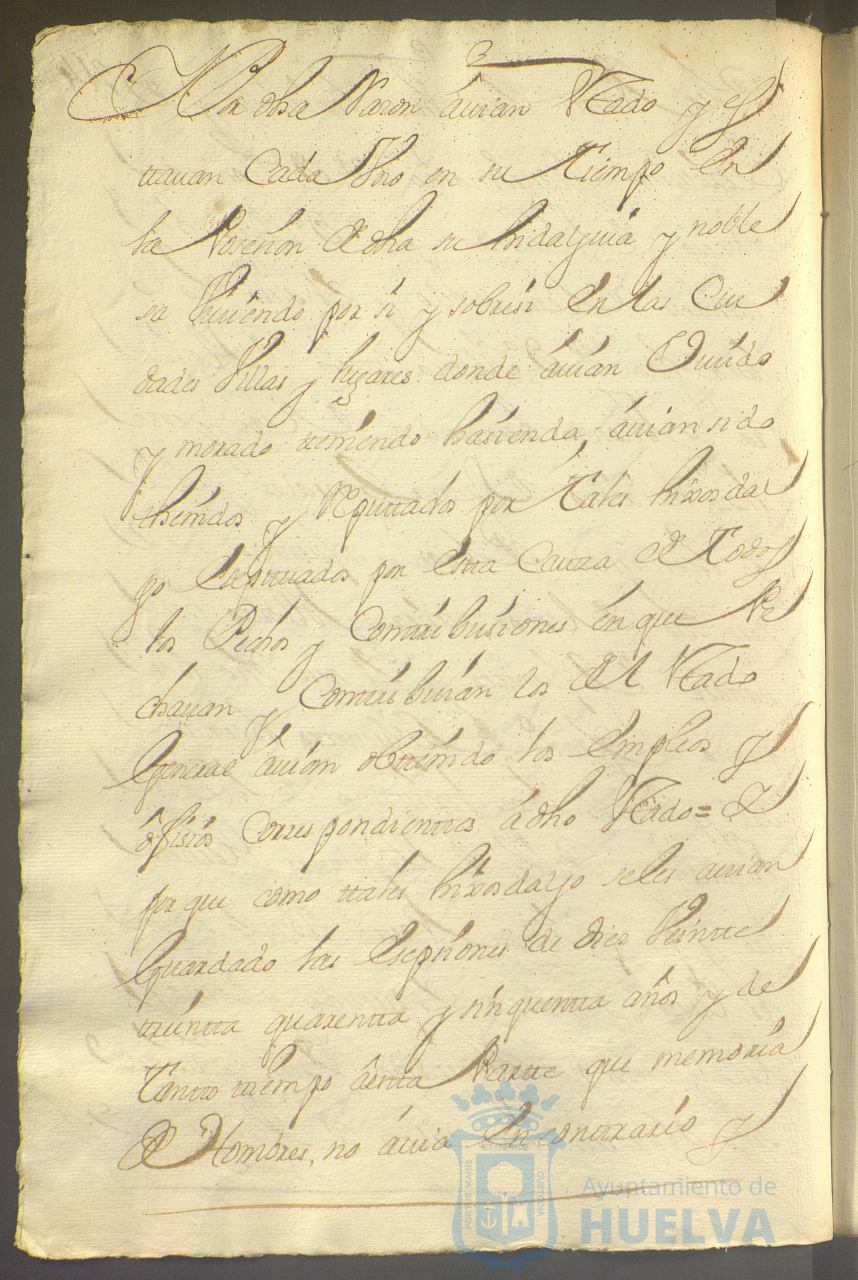 Por dha Varon avian Estado y es
ttavan Cada Vno en su Tiempo En
la Poseçion de dha su hidalguia y noble
sa Viuiendo por si y sobresi En las Ciu
dades Villas y lugares donde avian Viuido
y morado ttemendo hasienda, avian sido
thenidos y Reputtados por Tales hixosdal
go Eseptuados por Estta Cauza de Todos
los Pechos y Conttribusiones En que Pe
chavan y Conttribuian los del Estado
General avian obttenido los Empleos y
ofisios Correspondienttes a dho Estado = Y
por que como ttales hixosdalgo se les avian
Guardado las Esepsiones de diez Veintte
ttreintta quarentta y sinquentta años y de
Tantto ttiempo a estta Partte que memoria
de Hombres, no avia En conttrario y
Ayuntamiento de
HUELVA